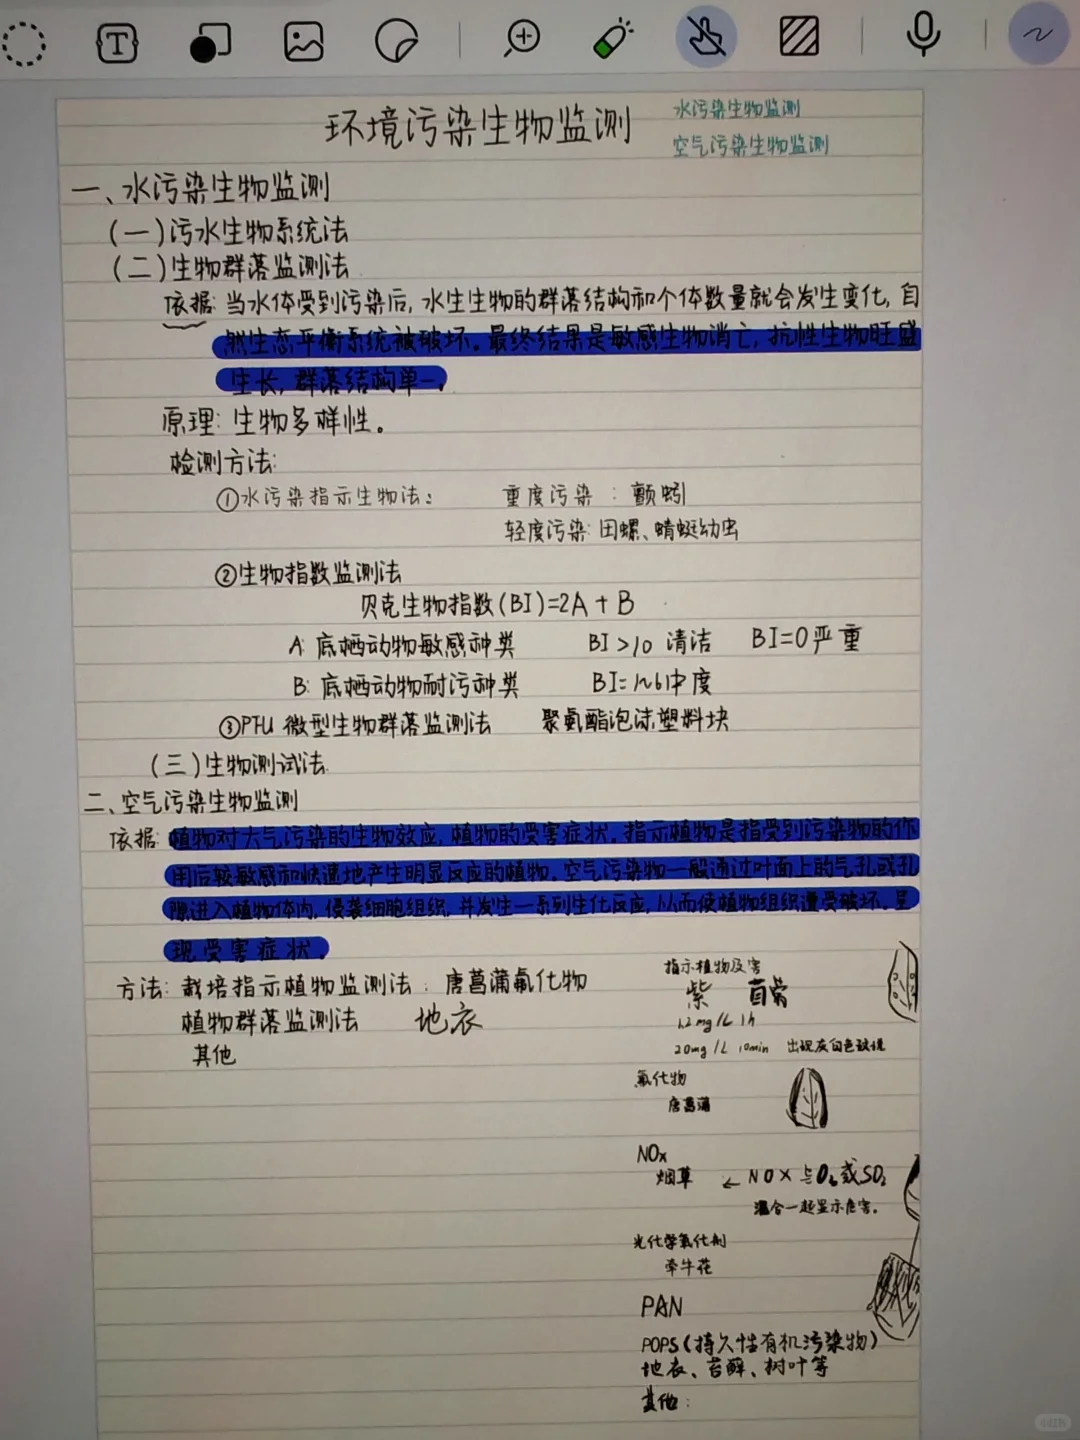 环境污染生物监测
水污染生物监测
空气污染生物监测
一、水污染生物监测
(一)污水生物系统法
(二)生物群落监测法
依据:当水体受到污染后,水生生物的群落结构和个体数量就会发生变化,自
然生态平衡系统被破坏。最终结果是敏感生物消亡,抗性生物旺盛
生长,群落结构单一。
原理:生物多样性。
检测方法:
①水污染指示生物法: 重度污染:颤蚓
轻度污染:田螺、蜻蜓幼虫
②生物指数监测法
贝克生物指数(BI)=2A+B
A:底栖动物敏感种类 BI>10 清洁 BI=0严重
B:底栖动物耐污种类 BI=1~6中度
③PFU 微型生物群落监测法 聚氨酯泡沫塑料块
(三)生物测试法.
二、空气污染生物监测
依据:植物对大气污染的生物效应,植物的受害症状。指示植物是指受到污染物的作
用后较敏感和快速地产生明显反应的植物。空气污染物一般通过叶面上的气孔或孔
隙进入植物体内,侵袭细胞组织,并发生一系列生化反应,从而使植物组织遭受破坏。呈
现受害症状。
方法:栽培指示植物监测法:唐菖蒲氟化物
植物群落监测法 地衣
其他
指示植物及害
紫 苜蓿
1.2mg/L 1h
20mg/L 10min 出现灰白色斑
氟化物
唐菖蒲
NOx
烟草 ← NOX与O₃或SO₂
混合一起显示危害。
光化学氧化剂
牵牛花
PAN
POPS(持久性有机污染物)
地衣、苔藓、树叶等
其他: